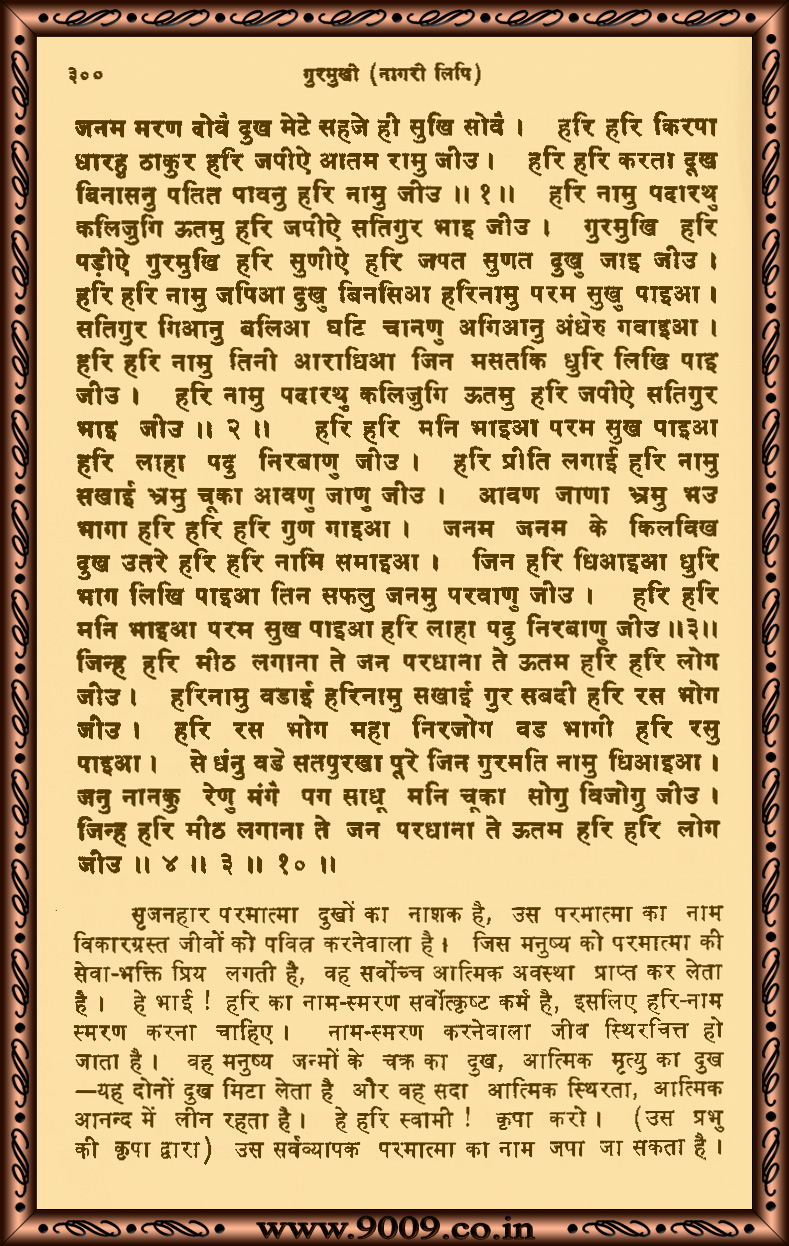 ३०० गुरमुखी (नागरी लिपि)
जनम मरण दोवै दुख मेटे सहजे ही सुखि सोवै । हरि हरि किरपा
धारहु ठाकुर हरि जपीऐ आतम रामु जीउ । हरि हरि करता दूख
बिनासनु पतित पावनु हरि नामु जीउ ॥ १ ॥ हरि नामु पदारथु
कलिजुगि ऊतमु हरि जपीऐ सतिगुर भाइ जीउ । गुरमुखि हरि
पड़ीऐ गुरमुखि हरि सुणीऐ हरि जपत सुणत दुखु जाइ जीउ ।
हरि हरि नामु जपिआ दुखु बिनसिआ हरिनामु परम सुखु पाइआ ।
सतिगुर गिआनु बलिआ घटि चानणु अगिआनु अंधेरु गवाइआ ।
हरि हरि नामु तिनी आराधिआ जिन मसतकि धुरि लिखि पाइ
जीउ । हरि नामु पदारथु कलिजुगि ऊतमु हरि जपीऐ सतिगुर
भाइ जीउ ॥ २ ॥ हरि हरि मनि भाइआ परम सुख पाइआ
हरि लाहा पदु निरबाणु जीउ । हरि प्रीति लगाई हरि नामु
सखाई भ्रमु चूका आवणु जाणु जीउ । आवण जाणा भ्रमु भउ
भागा हरि हरि हरि गुण गाइआ । जनम जनम के किलविख
दुख उतरे हरि हरि नामि समाइआ । जिन हरि धिआइआ धुरि
भाग लिखि पाइआ तिन सफलु जनमु परवाणु जीउ । हरि हरि
मनि भाइआ परम सुख पाइआ हरि लाहा पदु निरबाणु जीउ ॥३॥
जिन्ह हरि मीठ लगाना ते जन परधाना ते ऊतम हरि हरि लोग
जीउ । हरिनामु वडाई हरिनामु सखाई गुर सबदी हरि रस भोग
जीउ । हरि रस भोग महा निरजोग वड भागी हरि रसु
पाइआ । से धंनु वडे सतपुरखा पूरे जिन गुरमति नामु धिआइआ ।
जनु नानकु रेणु मंगै पग साधू मनि चूका सोगु विजोगु जीउ ।
जिन्ह हरि मीठ लगाना ते जन परधाना ते ऊतम हरि हरि लोग
जीउ ॥ ४ ॥ ३ ॥ १० ॥
सृजनहार परमात्मा दुखों का नाशक है, उस परमात्मा का नाम
विकारग्रस्त जीवों को पवित्र करनेवाला है । जिस मनुष्य को परमात्मा की
सेवा-भक्ति प्रिय लगती है, वह सर्वोच्च आत्मिक अवस्था प्राप्त कर लेता
है । हे भाई ! हरि का नाम-स्मरण सर्वोत्कृष्ट कर्म है, इसलिए हरि-नाम
स्मरण करना चाहिए । नाम-स्मरण करनेवाला जीव स्थिरचित्त हो
जाता है । वह मनुष्य जन्मों के चक्र का दुख, आत्मिक मृत्यु का दुख
—यह दोनों दुख मिटा लेता है और वह सदा आत्मिक स्थिरता, आत्मिक
आनन्द में लीन रहता है । हे हरि स्वामी ! कृपा करो । (उस प्रभु
की कृपा द्वारा) उस सर्वव्यापक परमात्मा का नाम जपा जा सकता है ।
www.9009.co.in